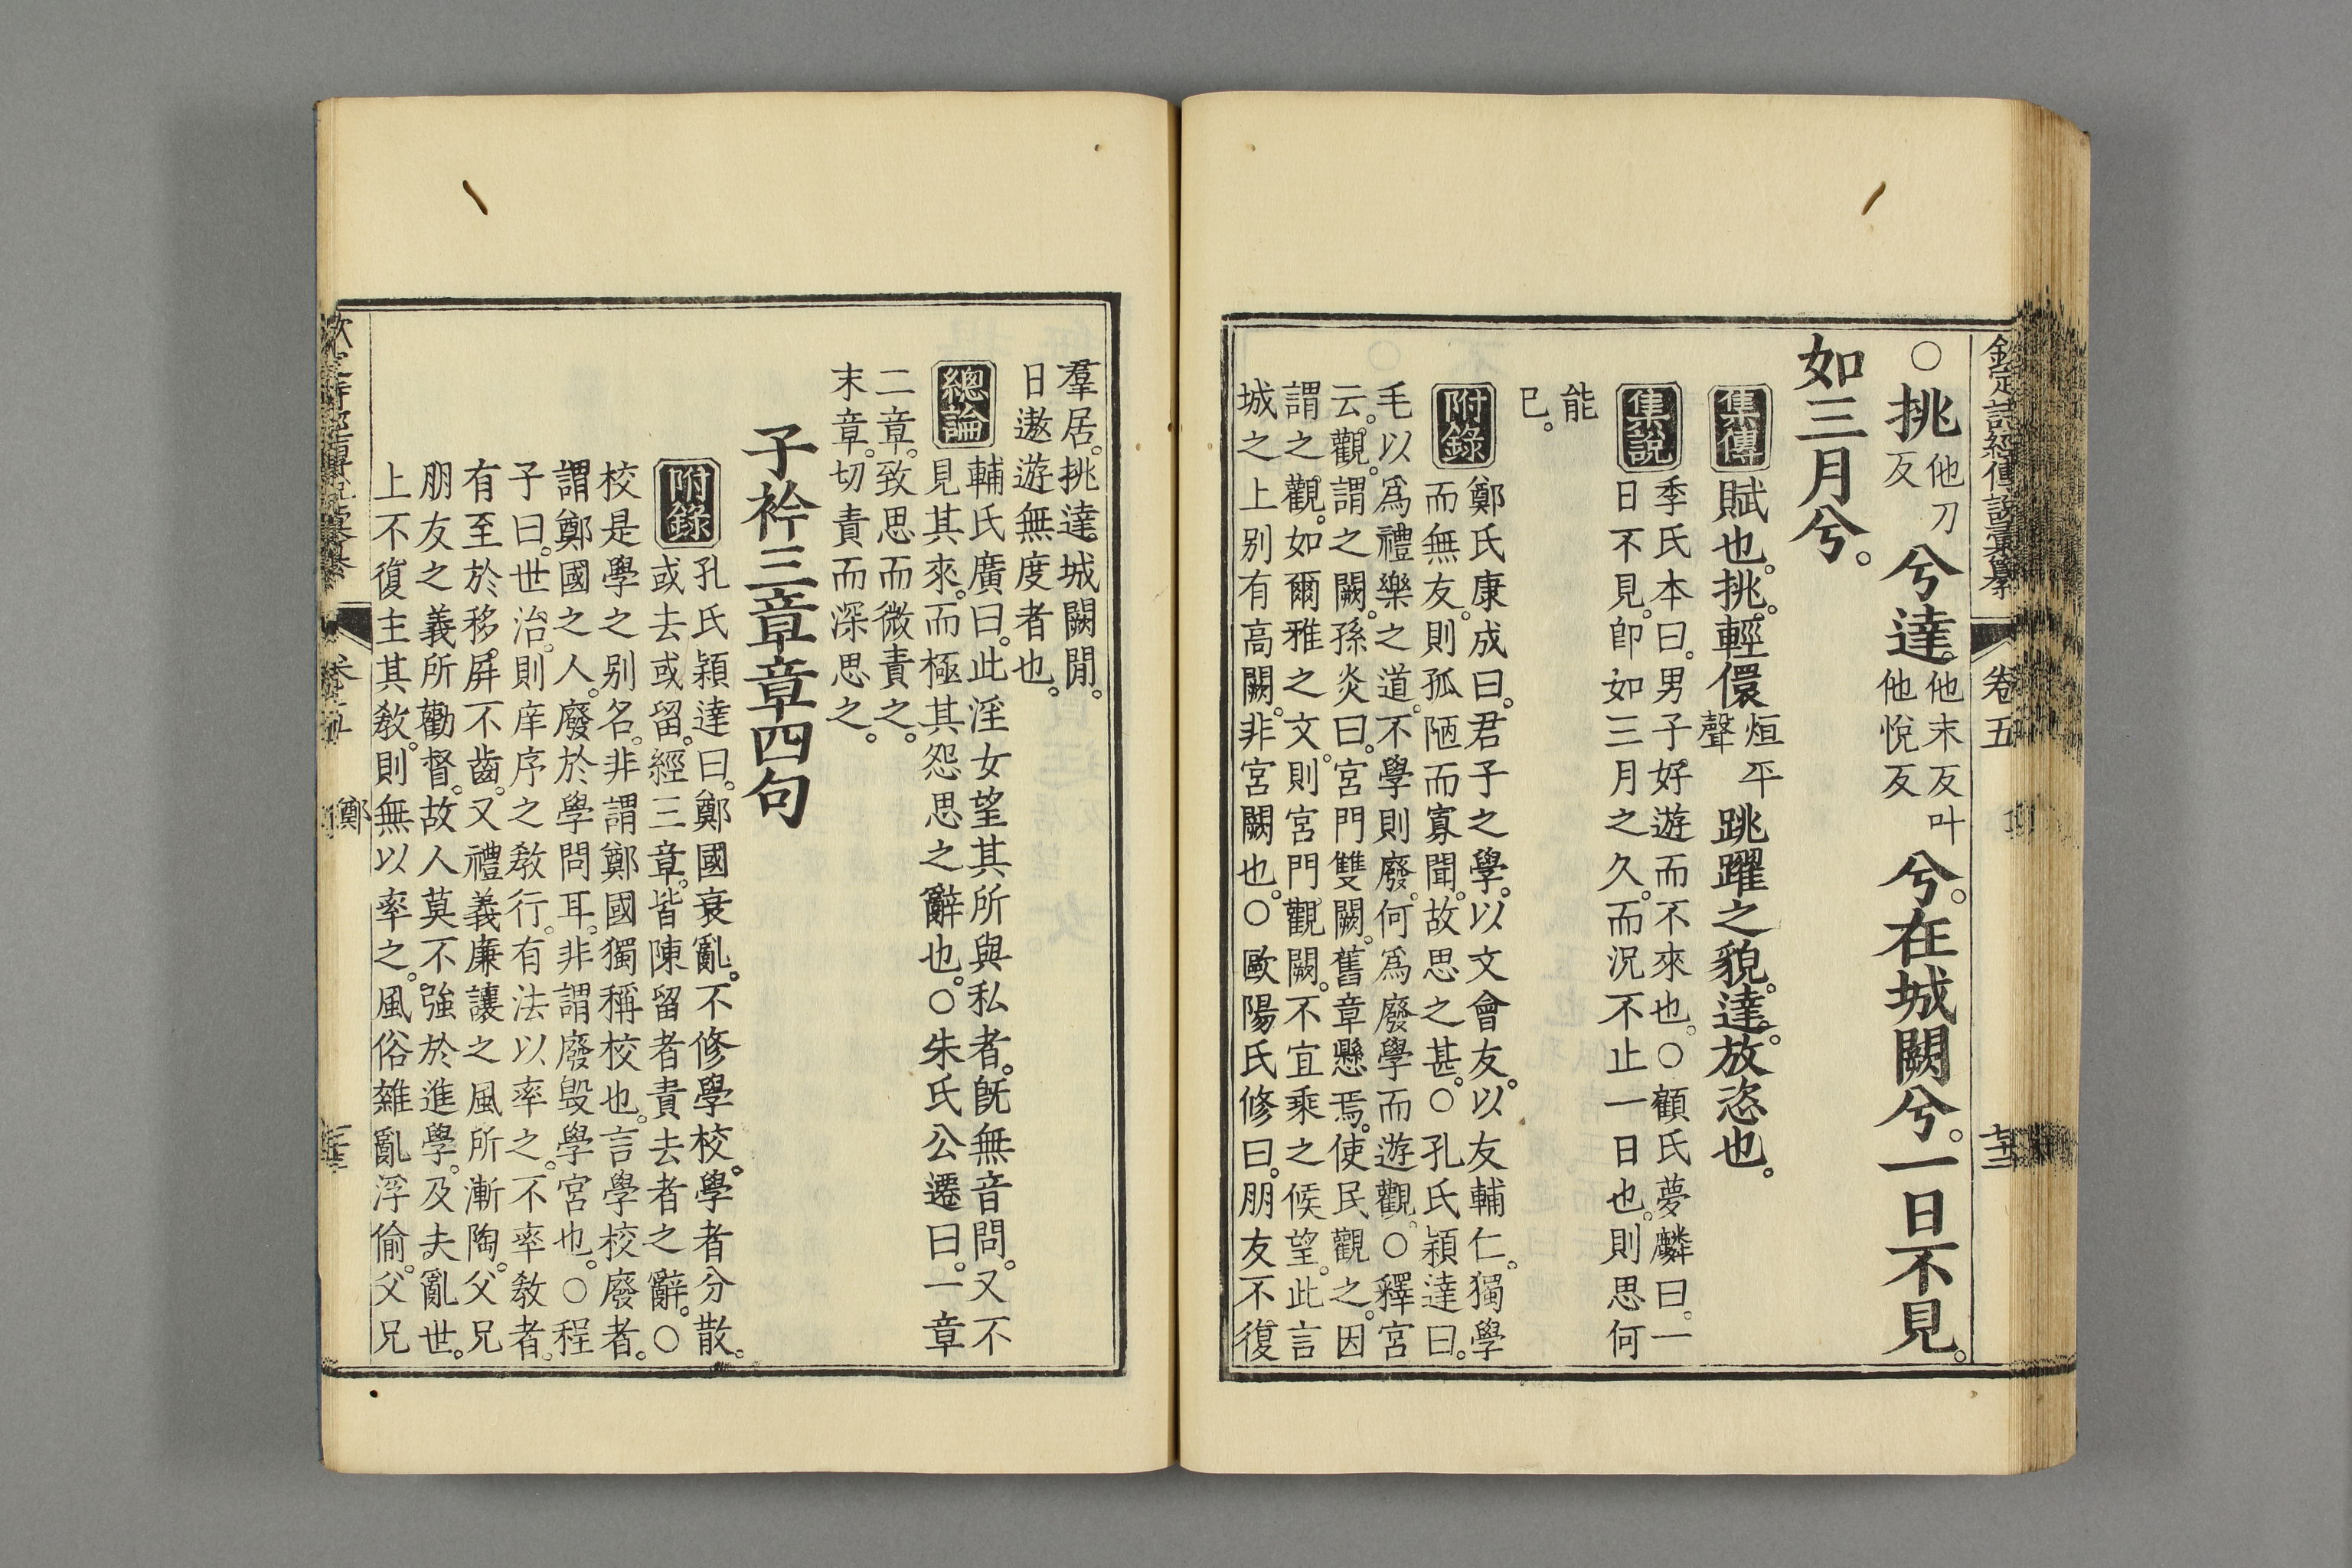 欽定詩經傳說彙纂 卷五
○挑他刀反兮達他末反叶他悅反兮。在城闕兮。一日不見。
如三月兮。
集傳 賦也。挑。輕儇烜平聲跳躍之貌。達。放恣也。
集說 季氏本曰。男子好遊而不來也。○顧氏夢麟曰。一
日不見。卽如三月之久。而況不止一日也。則思何
能
已。
附錄 鄭氏康成曰。君子之學。以文會友。以友輔仁。獨學
而無友。則孤陋而寡聞。故思之甚。○孔氏穎達曰。
毛以爲禮樂之道。不學則廢。何爲廢學而遊觀。○釋宮
云。觀。謂之闕。孫炎曰。宮門雙闕。舊章懸焉。使民觀之。因
謂之觀。如爾雅之文。則宮門觀闕。不宜乘之候望。此言
城之上别有高闕。非宮闕也。○歐陽氏修曰。朋友不復
羣居。挑達。城闕閒。
日遨遊無度者也。
總論 輔氏廣曰。此淫女望其所與私者。旣無音問。又不
見其來。而極其怨思之辭也。○朱氏公遷曰。一章
二章。致思而微責之。
末章。切責而深思之。
子衿三章章四句
附錄 孔氏穎達曰。鄭國衰亂。不修學校。學者分散。
或去或留。經三章。皆陳留者責去者之辭。○
校是學之别名。非謂鄭國獨稱校也。言學校廢者。
謂鄭國之人。廢於學問耳。非謂廢毁學宮也。○程
子曰。世治。則庠序之敎行。有法以率之。不率敎者。
有至於移屏不齒。又禮義廉讓之風所漸陶。父兄
朋友之義所勸督。故人莫不強於進學。及夫亂世。
上不復主其敎。則無以率之。風俗雜亂浮偷。父兄
鄭